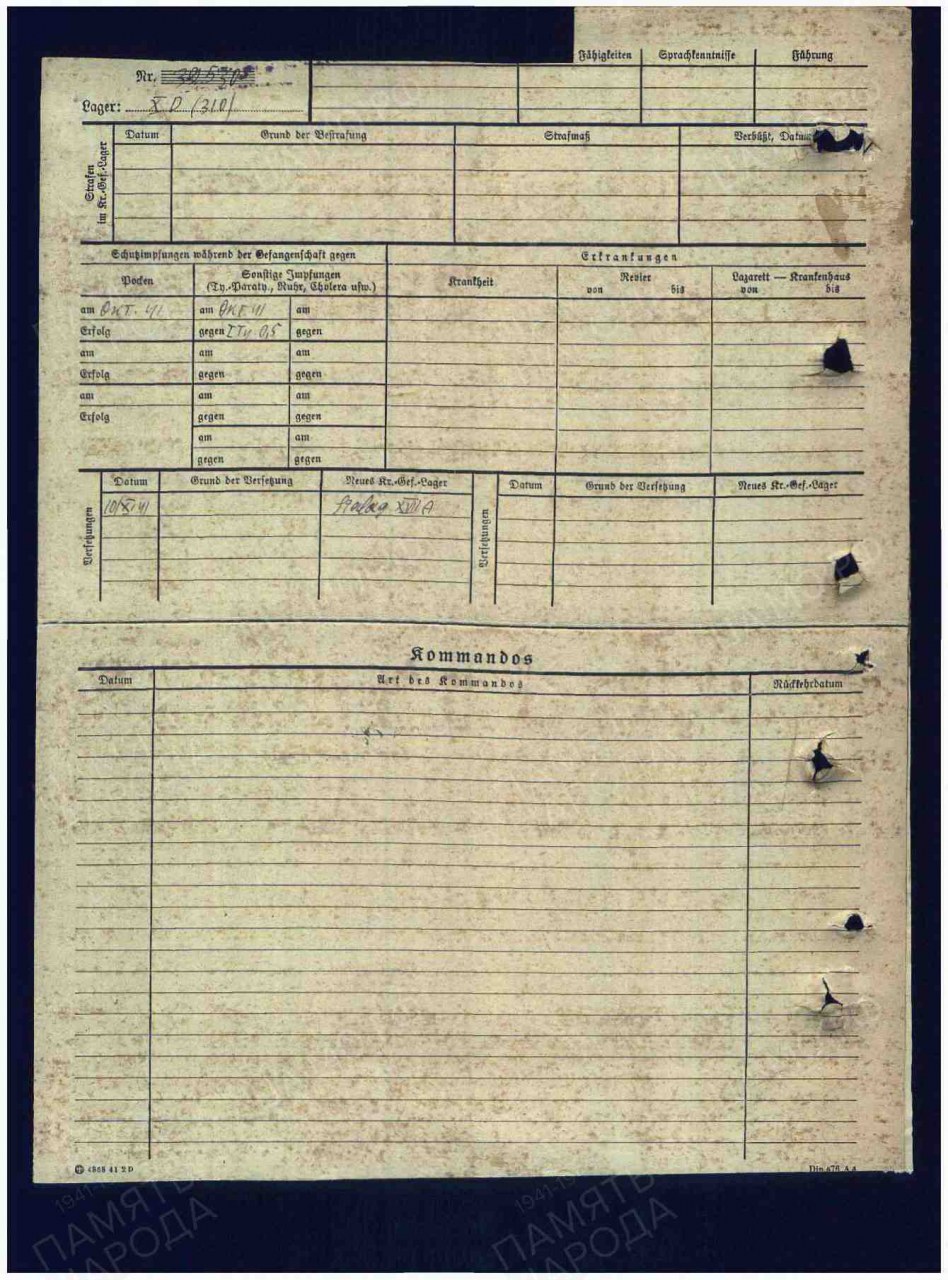 Fähigkeiten Sprachkenntnisse Führung
Nr.
Lager: X D (310)
Strafen im Kr.-Gef.-Lager
Datum Grund der Bestrafung Strafmaß Verbüßt, Datum
Schutzimpfungen während der Gefangenschaft gegen
Erkrankungen
Pocken
Sonstige Impfungen
(Ty.-Paraty., Ruhr, Cholera usw.)
Krankheit
Revier
von bis
Lazarett — Krankenhaus
von bis
am OKT. 41 am OKT 41 am
Erfolg gegen I Ty 0,5 gegen
am am am
Erfolg gegen gegen
am am am
Erfolg gegen gegen
am am
gegen gegen
Versetzungen
Datum Grund der Versetzung Neues Kr.-Gef.-Lager
10/X 41 Stalag XVII A
Versetzungen
Datum Grund der Versetzung Neues Kr.-Gef.-Lager
Kommandos
Datum Art des Kommandos Rückkehrdatum
4868 41 2 D
Din 476 A 4
1941-19
ПАМЯТЬ
НАРОДА
1941-19
ПАМЯТЬ
НАРОДА